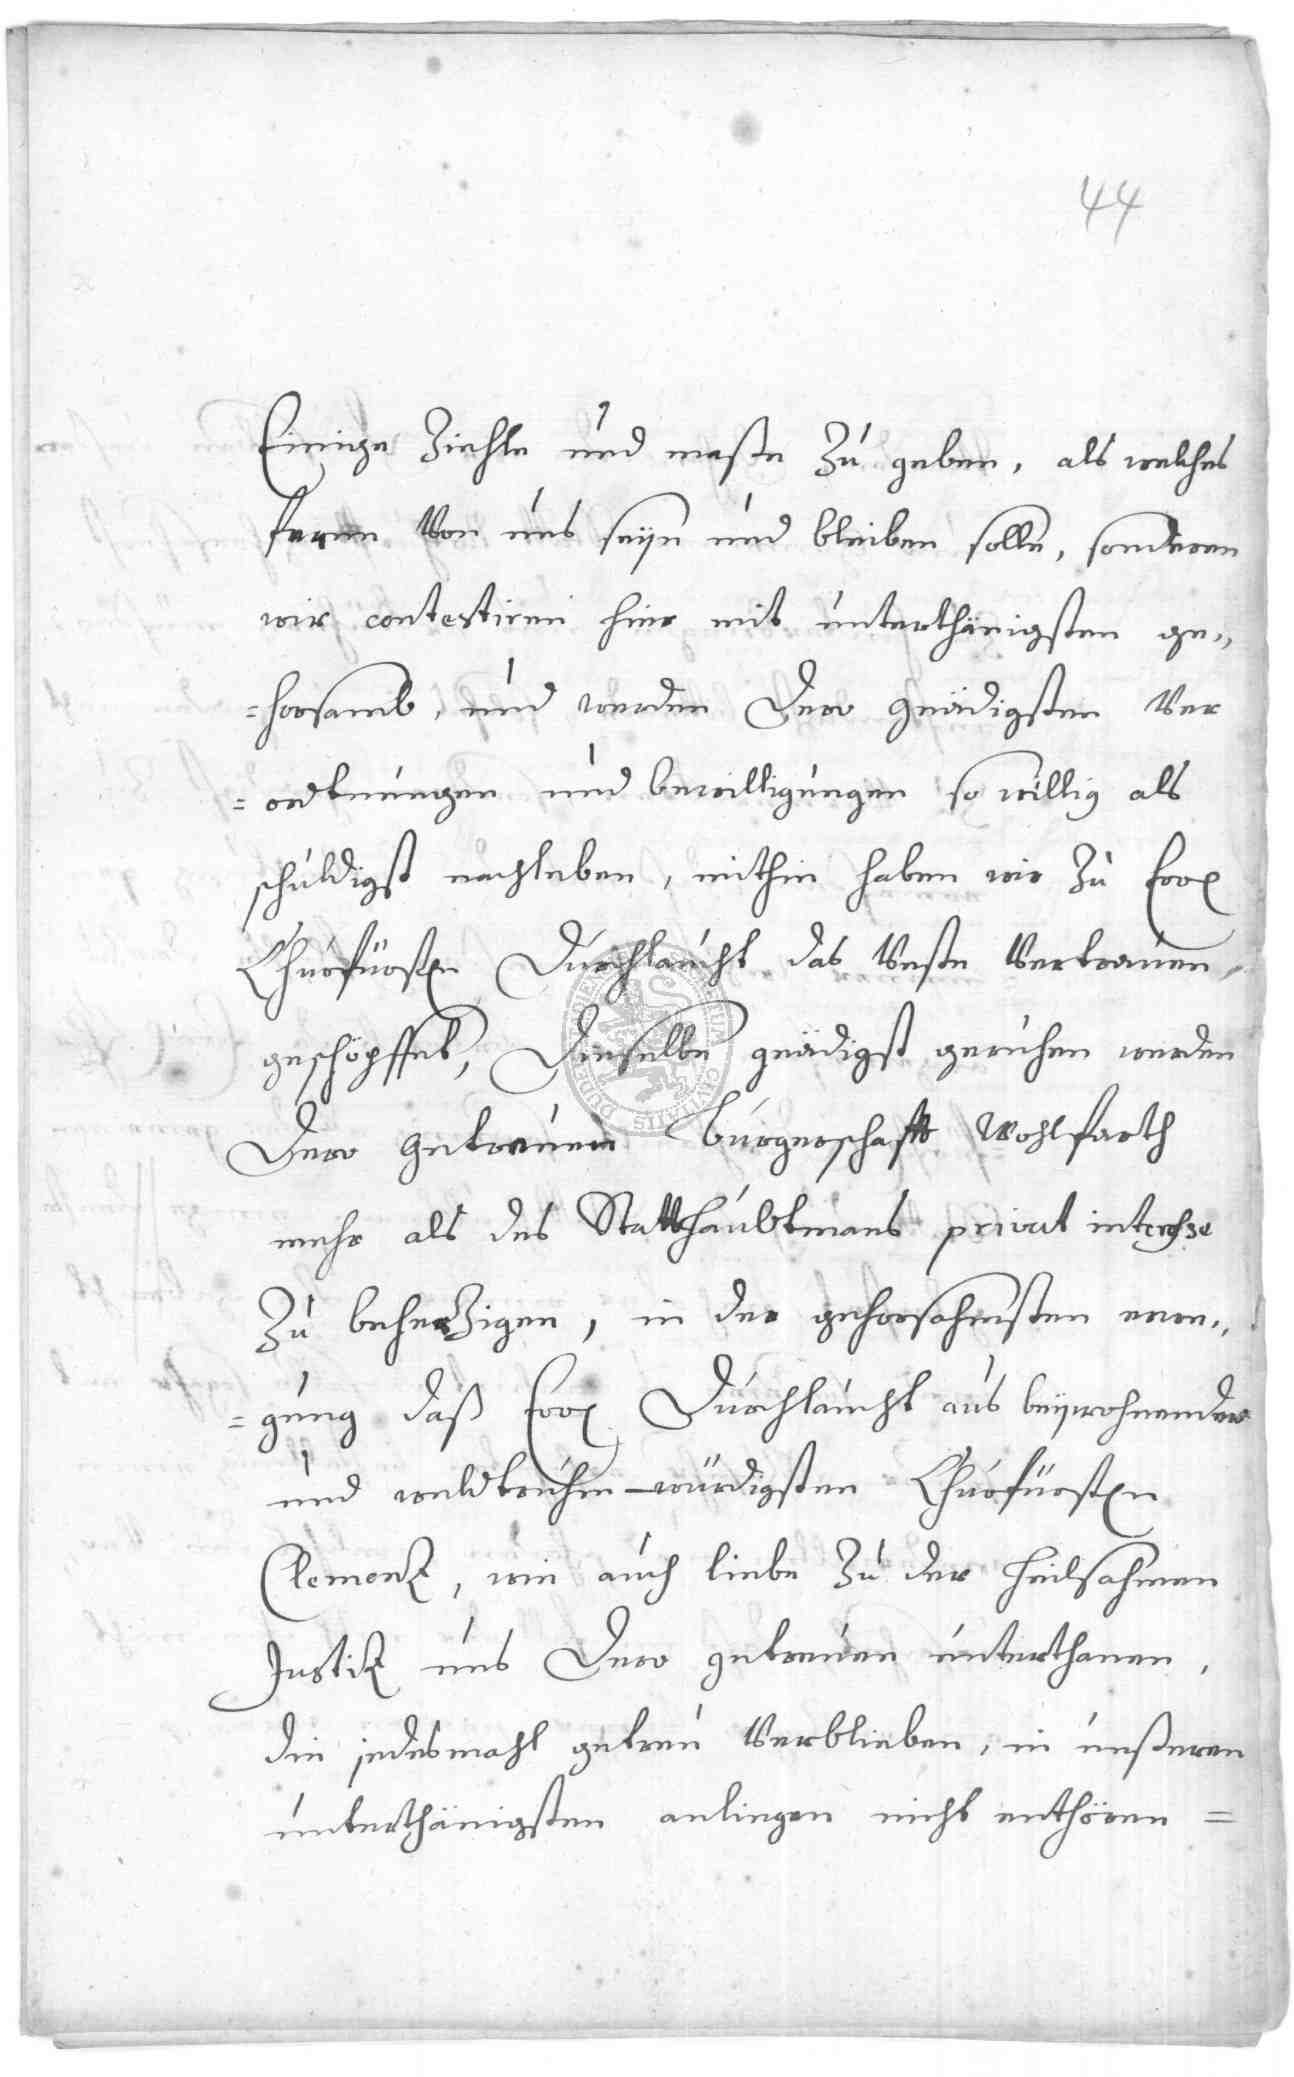 44
Einige Ziehle und maße Zu geben, als welches
ferne Von uns seÿn und bleiben solle, sonderen
wir contestiren hier mit unterthänigsten ge„
=horsamb, und werden Dero gnädigsten Ver
=ordtnungen und bewilligungen so willig als
schuldigst nachleben, mithin haben wir Zu Ewr
Churfürstn Durchlaucht das Veste Vertrauen
geschöpffet, Dieselbe gnädigst geruhen werden
Dero getreuen bürgerschafft Wohlfarth
mehr als des Statthaubtmans privat interesse
Zu beherZigen, in der gehorsahmsten erwe„
=gung daß Ewr Durchlaucht aus beÿwohnender
und weldtruhm-würdigsten Churfürstn
Clementz, wie auch liebe Zu der heilsahmen
Justitz uns Dero getreuen unterthanen,
die jedesmahl getreu Verblieben, in unßeren
unterthänigsten anliegen nicht enthören =